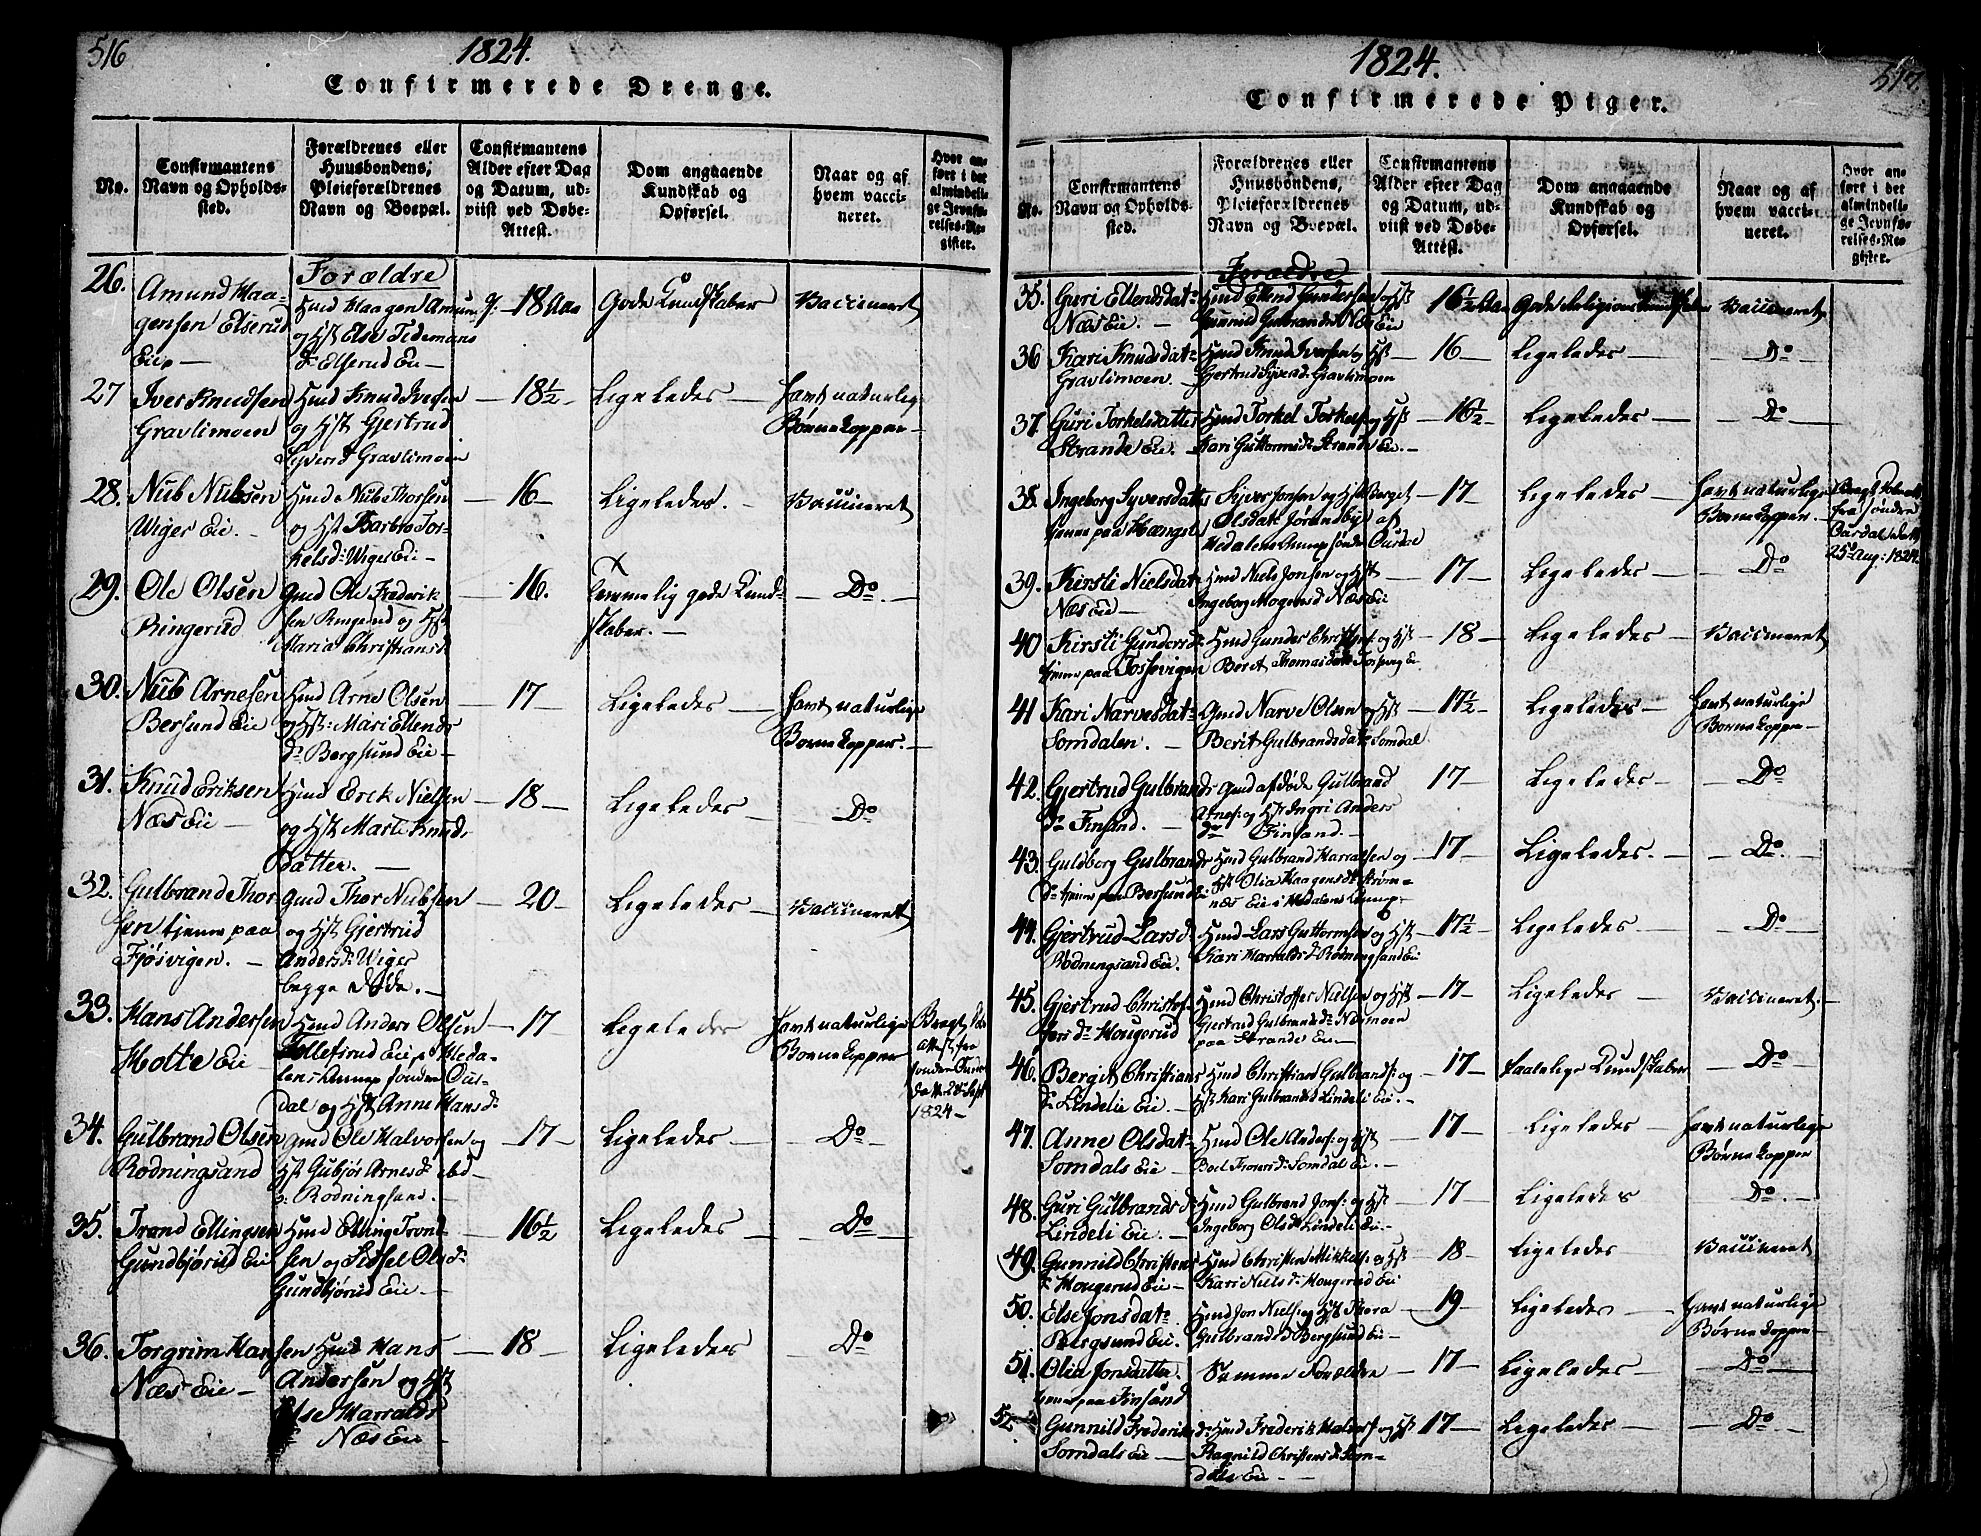 516
1824.
Confirmerede Drenge.
No.
Confirmantens
Navn og Opholds-
sted.
Forældrenes eller
Huusbondens,
Pleieforældrenes
Navn og Boepæl.
Confirmantens
Alder efter Dag
og Datum, ud-
viist ved Døbe-
Attest.
Dom angaaende
Kundskab og
Opførsel.
Naar og af
hvem vacci-
neret.
Hvor an-
ført i det
almindeli-
ge Jevnfø-
relses-Re-
gister.
Forældre
26. Amund Haa-
gensen Elserud
Eie
Hmd Haagen Amund
og Hst Else Tidemans
Dr Elserud Eie
18 Aar
Gode Kundskaber
Vaccineret
27 Iver Knudsen
Gravlimoen
Hmd Knud Iversen
og Hst Gjertrud
Syversd Gravlimoen
18½
Ligeledes
havt naturlige
Børnekopper
28. Niels Nielsen
Wiger Eie.
Hmd Niels Thorsen
og Hst Barbro Tos-
kelsd: Wiger Eie
16
Ligeledes.
Vaccineret
29. Ole Olsen
Ringerud
Gmd Ole Frederik
sen Ringerud og Hst
Maria Christiansd
16.
temmelig gode Kund-
skaber.
Do.
30. Niels Arnesen
Bersund Eie
Hmd Arne Olsen
og Hst: Mari Ellends
Dr Bergsund Eie
17
Ligeledes
havt naturlige
Børnekopper.
31. Knud Eriksen
Næs Eie
Hmd Erek Nielsen
og Hst Marte Knuds
datter.
18
Ligeledes
Do
32. Gulbrand Thor
sen tjener paa
Fjösvigen.
Gmd Thor Nielsen
og Hst Gjertrud
Andersd: Wiger
begge døde.
20
Ligeledes
Vaccineret
33. Hans Andersen
Motte Eie
Hmd Anders Olsen
Tollefsrud Eie Heda-
lens Annex søndre Our-
dal og Hst Anne Hansd:
17
Ligeledes
havt naturlige
Børnekopper
1824
34. Gulbrand Olsen
Rødningsand
Gmd Ole Halvorsen og
Hst Gubjør Arnesd: ibd
Rødningsand.
17
Ligeledes
Do
35. Trond Ellingsen
Gundbjørud Eie
Hmd Elling Trond
sen og Sidsel Olsd:
Gundbjørud Eie.
16½
Ligeledes
Do
36. Torgrim Han
Næs Eie
sen Hmd Hans
Andersen og Hst
Else Harralds
Næs Eie
18
Ligeledes
Do
517.
1824.
Confirmerede Piger.
No.
Confirmantens
Navn og Opholds-
sted.
Forældrenes eller
Huusbondens,
Pleieforældrenes
Navn og Boepæl.
Confirmantens
Alder efter Dag
og Datum, ud-
viist ved Døbe-
Attest.
Dom angaaende
Kundskab og
Opførsel.
Naar og af
hvem vacci-
neret.
Hvor an-
ført i det
almindeli-
ge Jevnfø-
relses-Re-
gister.
Forældre
35. Guri Ellendsdatr
Næs Eie.
Hmd Ellend Gundersen og Hst
Gunnild Gulbrandsd Næs Eie
16½ Aar
Gode Religions Kundskaber
Vaccineret
36 Kari Knudsdatr
Gravlimoen.
Hmd Knud Iversen og Hst
Gjertrud Syversd. Gravlimoen
16
Ligeledes
Do
37 Guri Torkelsdatter
Strande Eie.
Hmd Torkel Torkels og Hst
Kari Guttormsdr Strande Eie.
16½
Ligeledes
Do
38. Ingeborg Syversdatter
tjener paa Hængsle
Syver Jonsen og Hst Berget
Olsdatr Jørandby af
Hedalens Annex søndre Ourdal
17
Ligeledes
havt naturlige
Børnekopper.
25de Aug: 1824
39. Kirsti Nielsdatr
Næs Eie
Hmd Niels Jonsen og Hst
Ingeborg Mogensd Næs Eie
17
Ligeledes
Do
40 Kirsti Gundersdr
tjener paa Fossevigen
Hmd Gunder Christens og Hst
Beret Thomasdatr
18
Ligeledes
Vaccineret
41 Kari Narvesdatr
Somdalen.
Gmd Narve Olsen og Hst
Berit Gulbrandsdatr Somdal
17½
Ligeledes
havt naturlige
Børnekopper
42. Gjertrud Gulbrands
dr Finsand.
Gmd afdøde Gulbrand
Arnes: og Hst Ingri Anders
dr Finsand.
17
Ligeledes
Do
43. Guldborg Gulbrands
dr tjener paa Bersund Eie
Hmd Gulbrand Harralsen og
Hst Olia Haagensdr Strøm-
næs Eie i Hedalens Annex
17
Ligeledes.
Do.
44. Gjertrud Larsd
Rødningsand Eie.
Hmd Lars Guttormsen og Hst
Kari Harraldsd Rødningsand Eie
17½
Ligeledes
Do
45. Gjertrud Christof
fersdr Hougerud
Hmd Christoffer Nielsen og Hst
Gjertrud Gulbrandsdr Næsmoen
paa Strande Eie
17
Ligeledes
Vaccineret.
46. Bergit Christians
dr Lindelie Eie.
Hmd Christians Gulbrands: og
Hst Kari Gulbrandsd Lindeli Eie.
17
taalelige Kundskaber
Do
47. Anne Olsdatr
Somdals Eie
Hmd Ole Anders: og Hst
Boel Thoresdr: Somdal Eie.
17
Ligeledes
havt naturlige
Børnekopper
48. Guri Gulbrandsdr
Lindeli Eie.
Hmd Gulbrand Jons: og Hst
Ingeborg Olsdr Lindeli Eie.
17
Ligeledes
Do.
49. Gunnild Christens
dr Hougerud Eie
Hmd Christen Mikkels: og Hst
Kari Nielsdr: Hougerud Eie
18
Ligeledes
Vaccineret
50. Else Jonsdatr
Bergsund Eie.
Hmd Jon Niels: og Hst Thora
Gulbrandsd Bergsund Eie
19
Ligeledes
havt naturlige
Børnekopper
51. Olia Jonsdatter.
tjener paa Finsand
Samme Forældre
17
Ligeledes
Do
52. Gunnild Frederiks
Somdals Eie
dr: Hmd Frederik Halvors: og Hst
Ragnild Christensdr: Som-
dals Eie
17
Ligeledes
Do.